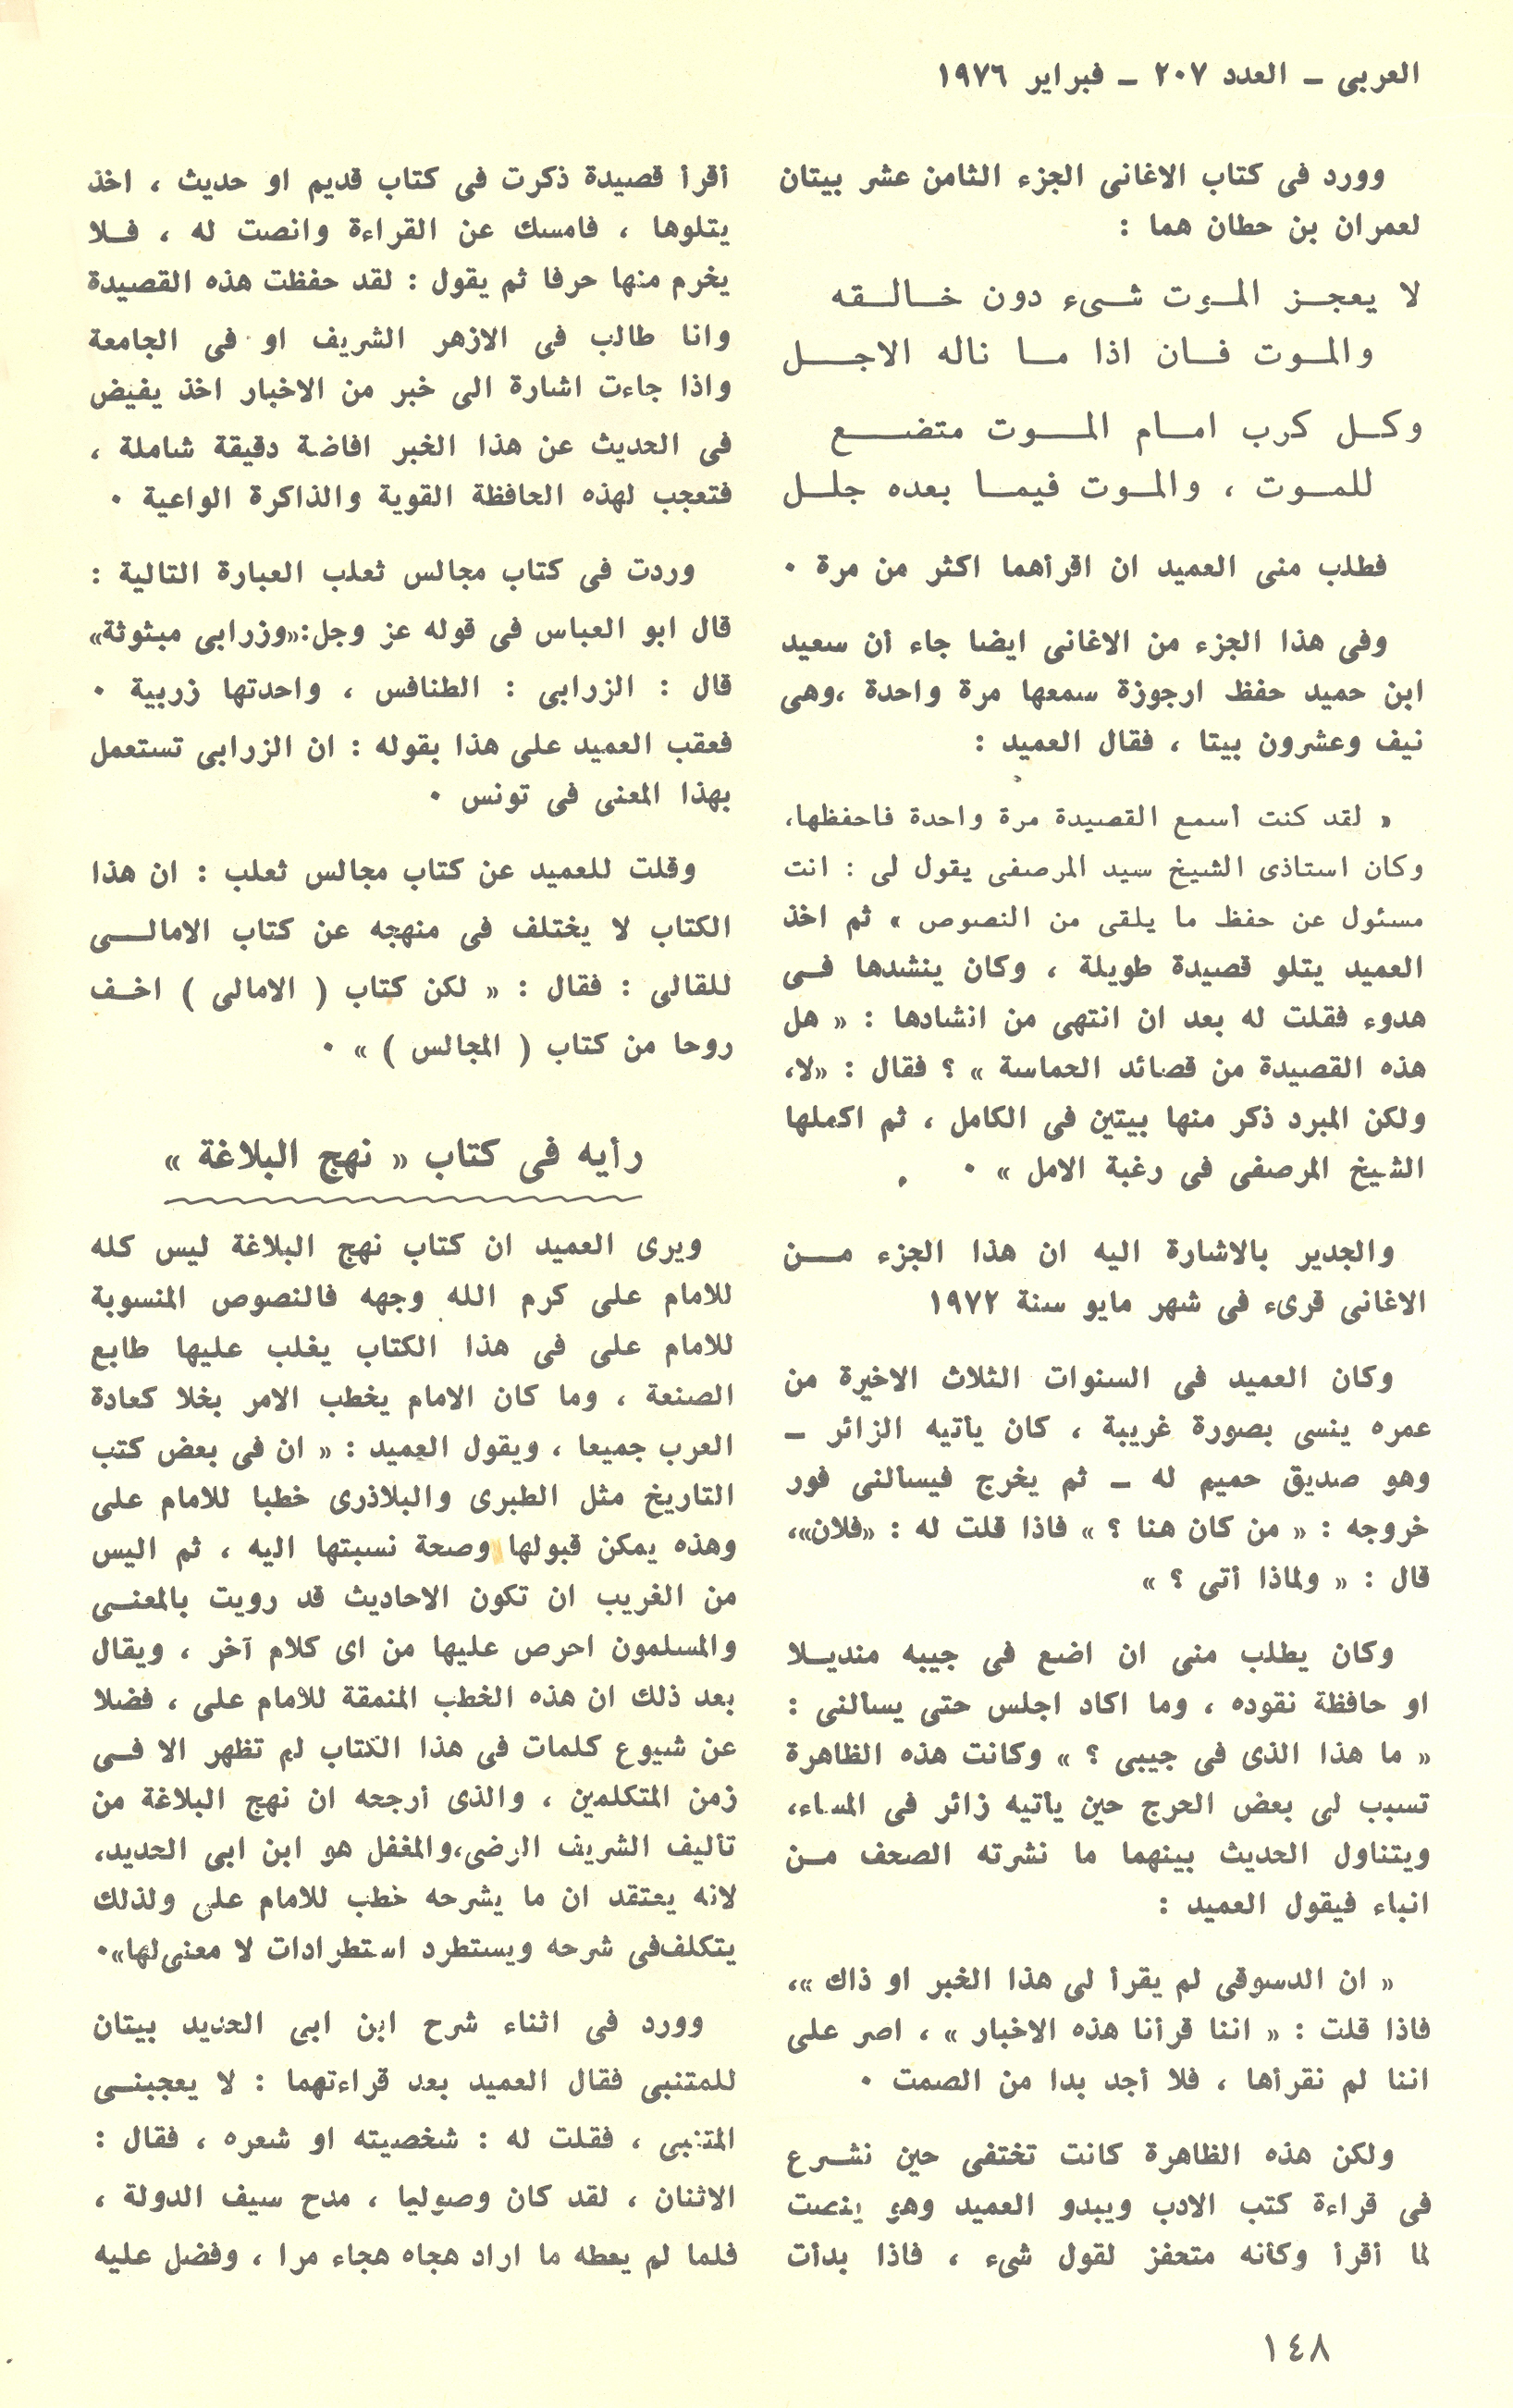 العربى ـ العدد ٢٠٧ ـ فبراير ١٩٧٦
وورد فى كتاب الاغانى الجزء الثامن عشر بيتان
لعمران بن حطان هما :
لا يعجـز المـوت شـىء دون خـالـقه
والمـوت فـان اذا مـا ناله الاجـل
وكـل كرب امـام المـوت متضـع
للمـوت ، والمـوت فيمـا بعده جلـل
فطلب منى العميد ان اقرأهما اكثر من مرة ٠
وفى هذا الجزء من الاغانى ايضا جاء أن سعيد
ابن حميد حفظ ارجوزة سمعها مرة واحدة ،وهى
نيف وعشرون بيتا ، فقال العميد :
« لقد كنت أسمع القصيدة مرة واحدة فاحفظها،
وكان استاذى الشيخ سيد المرصفى يقول لى : انت
مسئول عن حفظ ما يلقى من النصوص » ثم اخذ
العميد يتلو قصيدة طويلة ، وكان ينشدها فـى
هدوء فقلت له بعد ان انتهى من انشادها : « هل
هذه القصيدة من قصائد الحماسة » ؟ فقال : «لا،
ولكن المبرد ذكر منها بيتين فى الكامل ، ثم اكملها
الشيخ المرصفى فى رغبة الامل » ٠
والجدير بالاشارة اليه ان هذا الجزء مـن
الاغانى قرىء فى شهر مايو سنة ١٩٧٢
وكان العميد فى السنوات الثلاث الاخيرة من
عمره ينسى بصورة غريبة ، كان يأتيه الزائر ـ
وهو صديق حميم له ـ ثم يخرج فيسألنى فور
خروجه : « من كان هنا ؟ » فاذا قلت له : «فلان»،
قال : « ولماذا أتى ؟ »
وكان يطلب منى ان اضع فى جيبه منديـلا
او حافظة نقوده ، وما اكاد اجلس حتى يسألنى :
« ما هذا الذى فى جيبى ؟ » وكانت هذه الظاهرة
تسبب لى بعض الحرج حين يأتيه زائر فى المساء،
ويتناول الحديث بينهما ما نشرته الصحف مـن
انباء فيقول العميد :
« ان الدسوقى لم يقرأ لى هذا الخبر او ذاك »،
فاذا قلت : « اننا قرأنا هذه الاخبار » ، اصر على
اننا لم نقرأها ، فلا أجد بدا من الصمت ٠
ولكن هذه الظاهرة كانت تختفى حين نشـرع
فى قراءة كتب الادب ويبدو العميد وهو ينصت
لما أقرأ وكأنه متحفز لقول شىء ، فاذا بدأت
أقرأ قصيدة ذكرت فى كتاب قديم او حديث ، اخذ
يتلوها ، فامسك عن القراءة وانصت له ، فـلا
يخرم منها حرفا ثم يقول : لقد حفظت هذه القصيدة
وانا طالب فى الازهر الشريف او فى الجامعة
واذا جاءت اشارة الى خبر من الاخبار اخذ يفيض
فى الحديث عن هذا الخبر افاضة دقيقة شاملة ،
فتعجب لهذه الحافظة القوية والذاكرة الواعية ٠
وردت فى كتاب مجالس ثعلب العبارة التالية :
قال ابو العباس فى قوله عز وجل:«وزرابى مبثوثة»
قال : الزرابى : الطنافس ، واحدتها زربية ٠
فعقب العميد على هذا بقوله : ان الزرابى تستعمل
بهذا المعنى فى تونس ٠
وقلت للعميد عن كتاب مجالس ثعلب : ان هذا
الكتاب لا يختلف فى منهجه عن كتاب الامالـى
للقالى : فقال : « لكن كتاب ( الامالى ) اخـف
روحا من كتاب ( المجالس ) » ٠
رأيه فى كتاب « نهج البلاغة »
ويرى العميد ان كتاب نهج البلاغة ليس كله
للامام على كرم الله وجهه فالنصوص المنسوبة
للامام على فى هذا الكتاب يغلب عليها طابع
الصنعة ، وما كان الامام يخطب الامر بخلا كعادة
العرب جميعا ، ويقول العميد : « ان فى بعض كتب
التاريخ مثل الطبرى والبلاذرى خطبا للامام على
وهذه يمكن قبولها وصحة نسبتها اليه ، ثم اليس
من الغريب ان تكون الاحاديث قد رويت بالمعنـى
والمسلمون احرص عليها من اى كلام آخر ، ويقال
بعد ذلك ان هذه الخطب المنمقة للامام على ، فضلا
عن شيوع كلمات فى هذا الكتاب لم تظهر الا فـى
زمن المتكلمين ، والذى أرجحه ان نهج البلاغة من
تأليف الشريف الرضى،والمغفل هو ابن ابى الحديد،
لانه يعتقد ان ما يشرحه خطب للامام على ولذلك
يتكلف فى شرحه ويستطرد استطرادات لا معنى لها»٠
وورد فى اثناء شرح ابن ابى الحديد بيتان
للمتنبى فقال العميد بعد قراءتهما : لا يعجبنـى
المتنبى ، فقلت له : شخصيته او شعره ، فقال :
الاثنان ، لقد كان وصوليا ، مدح سيف الدولة ،
فلما لم يعطه ما اراد هجاه هجاء مرا ، وفضل عليه
١٤٨